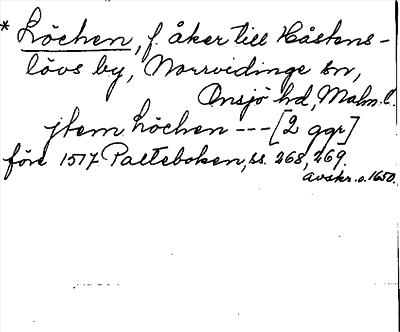 * Löchen, f. åker till Håstens-
lövs by, Norrvidinge sn,
Onsjö hd, Malm. l.
jtem Löchen --- [2 ggr]
före 1517 Palteboken, ss. 268, 269.
avskr. o. 1650.